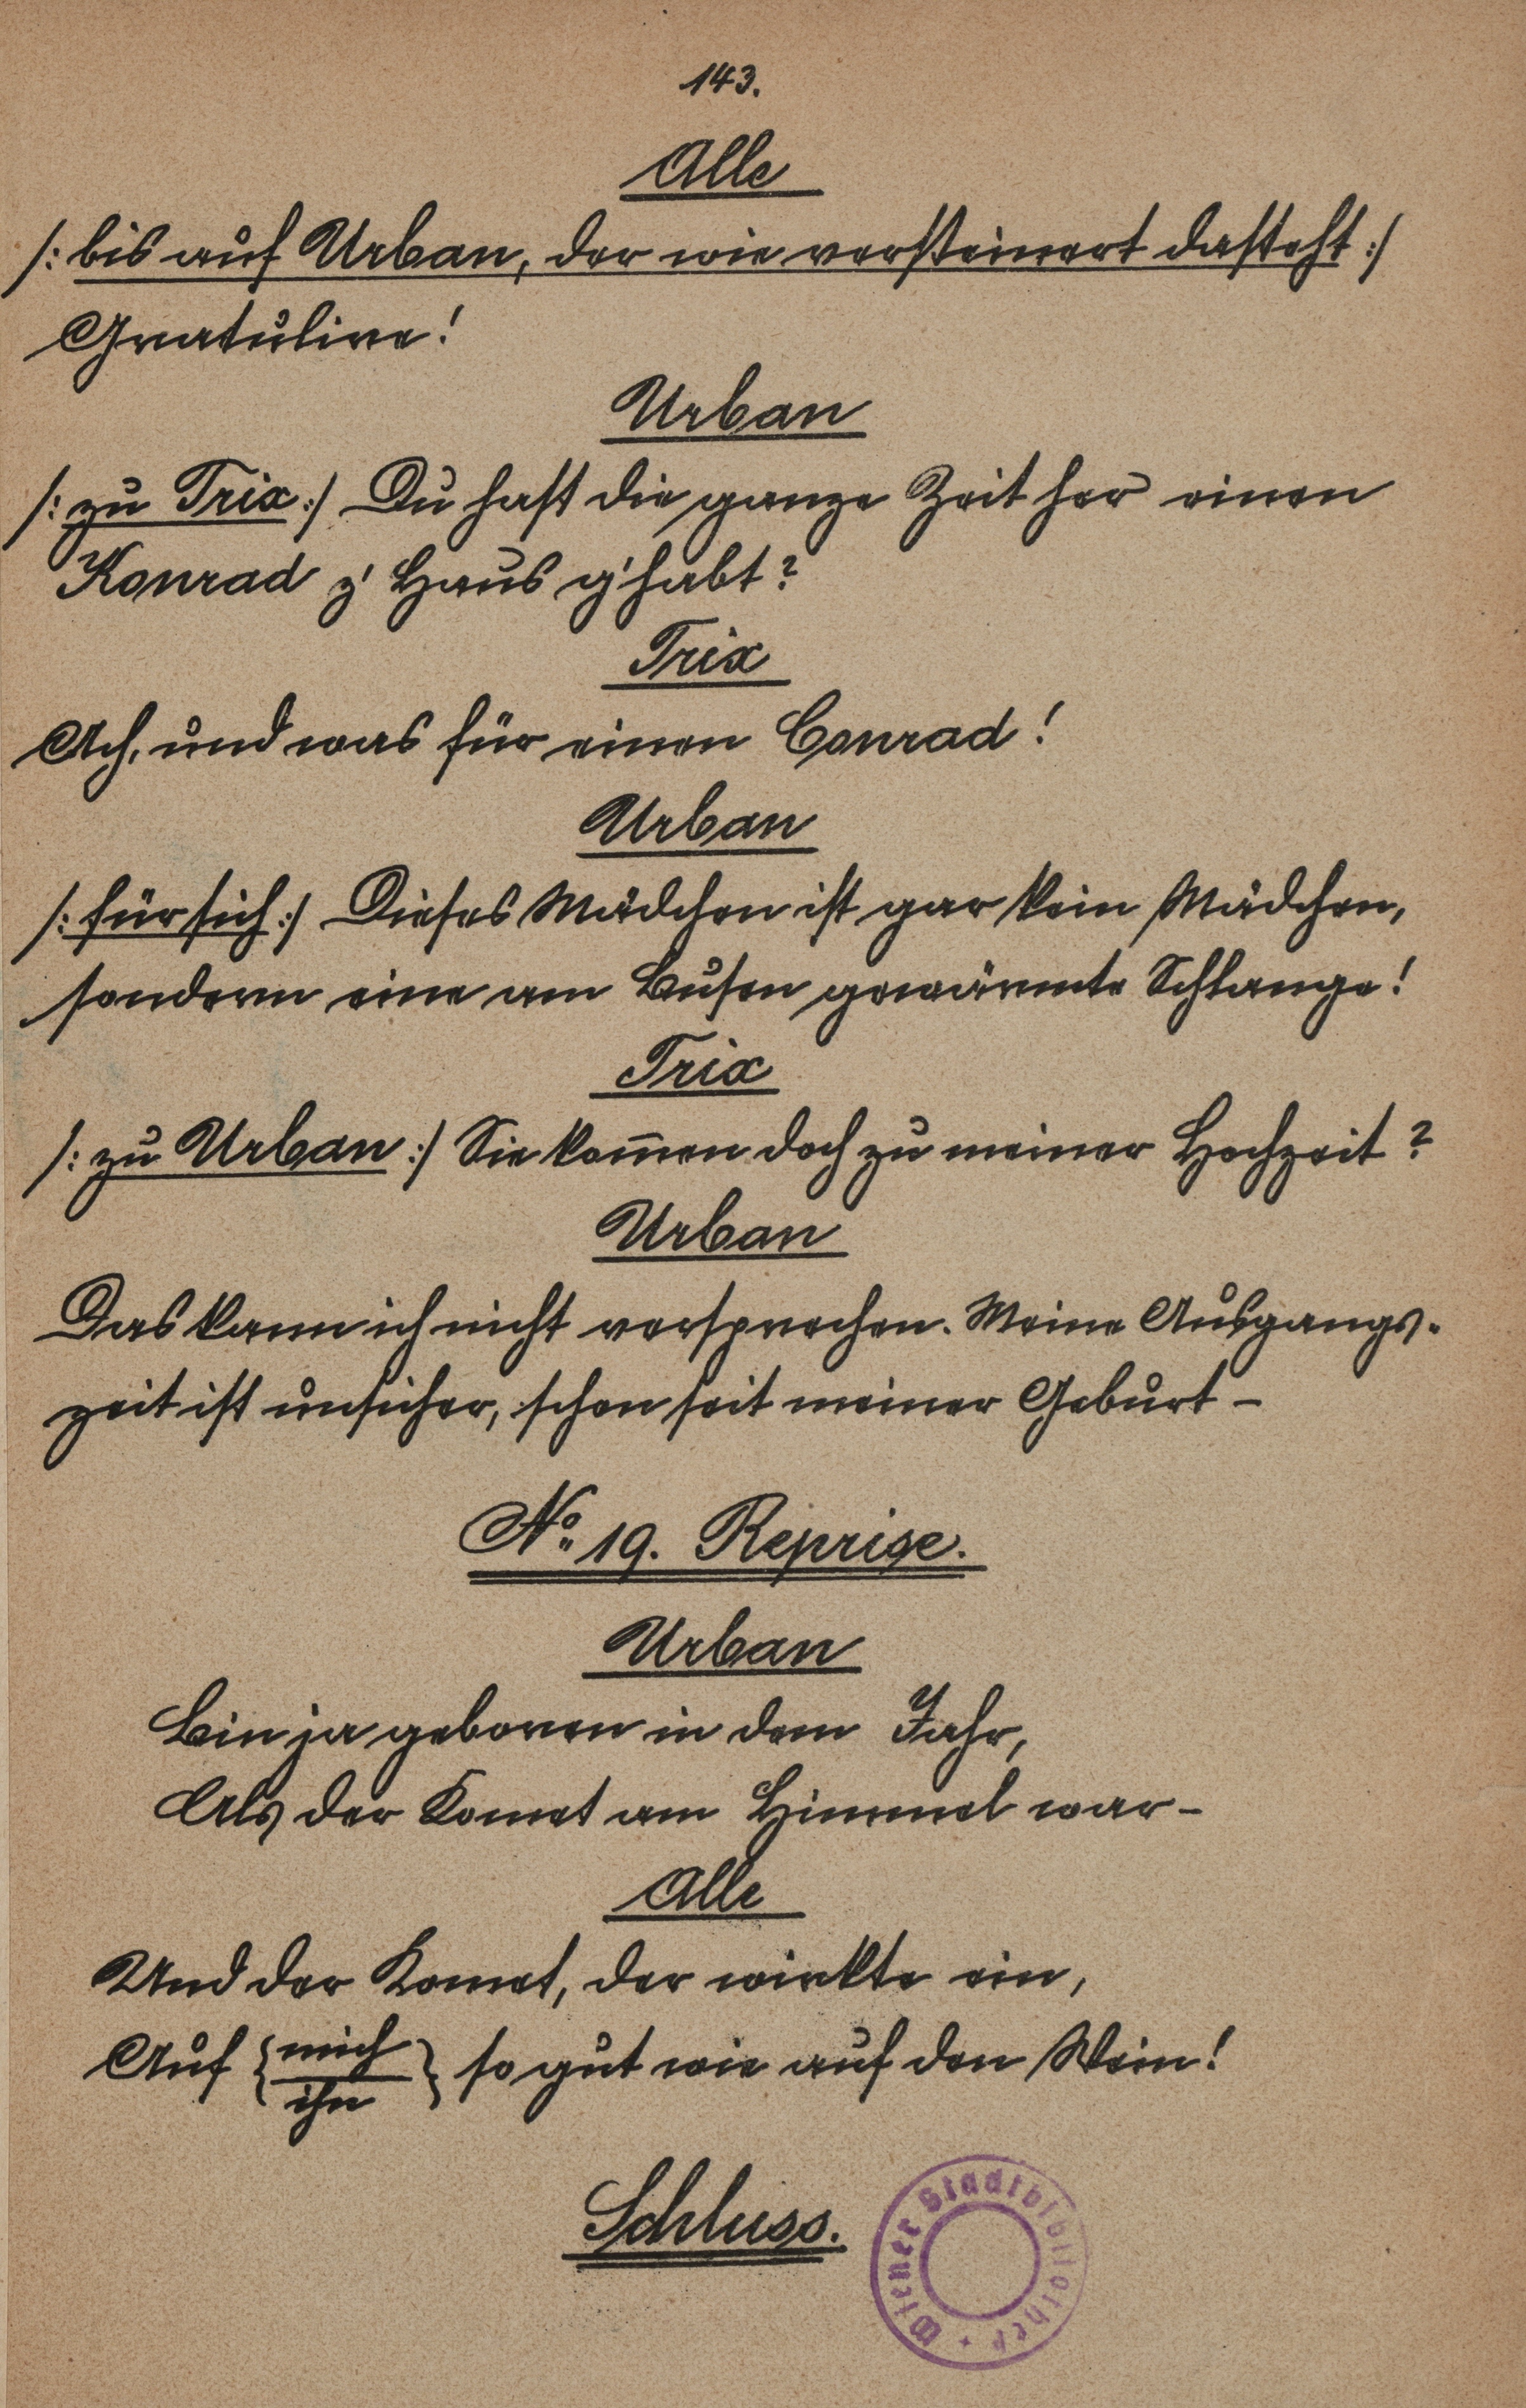 143.
Alle
/: bis auf Urban, der wie versteinert dasteht :/
Gratulire!
Urban
/: zu Trix :/ Du hast die ganze Zeit her einen
Konrad z' Haus g'habt?
Trix
Ach, und was für einen Conrad!
Urban
/: für sich :/ Dieses Mädchen ist gar kein Mädchen,
sondern eine am Busen gewärmte Schlange!
Trix
/: zu Urban :/ Sie kom̄en doch zu meiner Hochzeit?
Urban
Das kann ich nicht versprechen. Meine Ausgangs-
zeit ist unsicher, schon seit meiner Geburt –
No. 19. Reprise.
Urban
Bin ja geboren in dem Jahr,
Als der Komet am Himmel war –
Alle
Und der Komet, der wirkte ein,
Auf { mich / ihn } so gut wie auf den Wein!
Schluss.
Wiener Stadtbibliothek